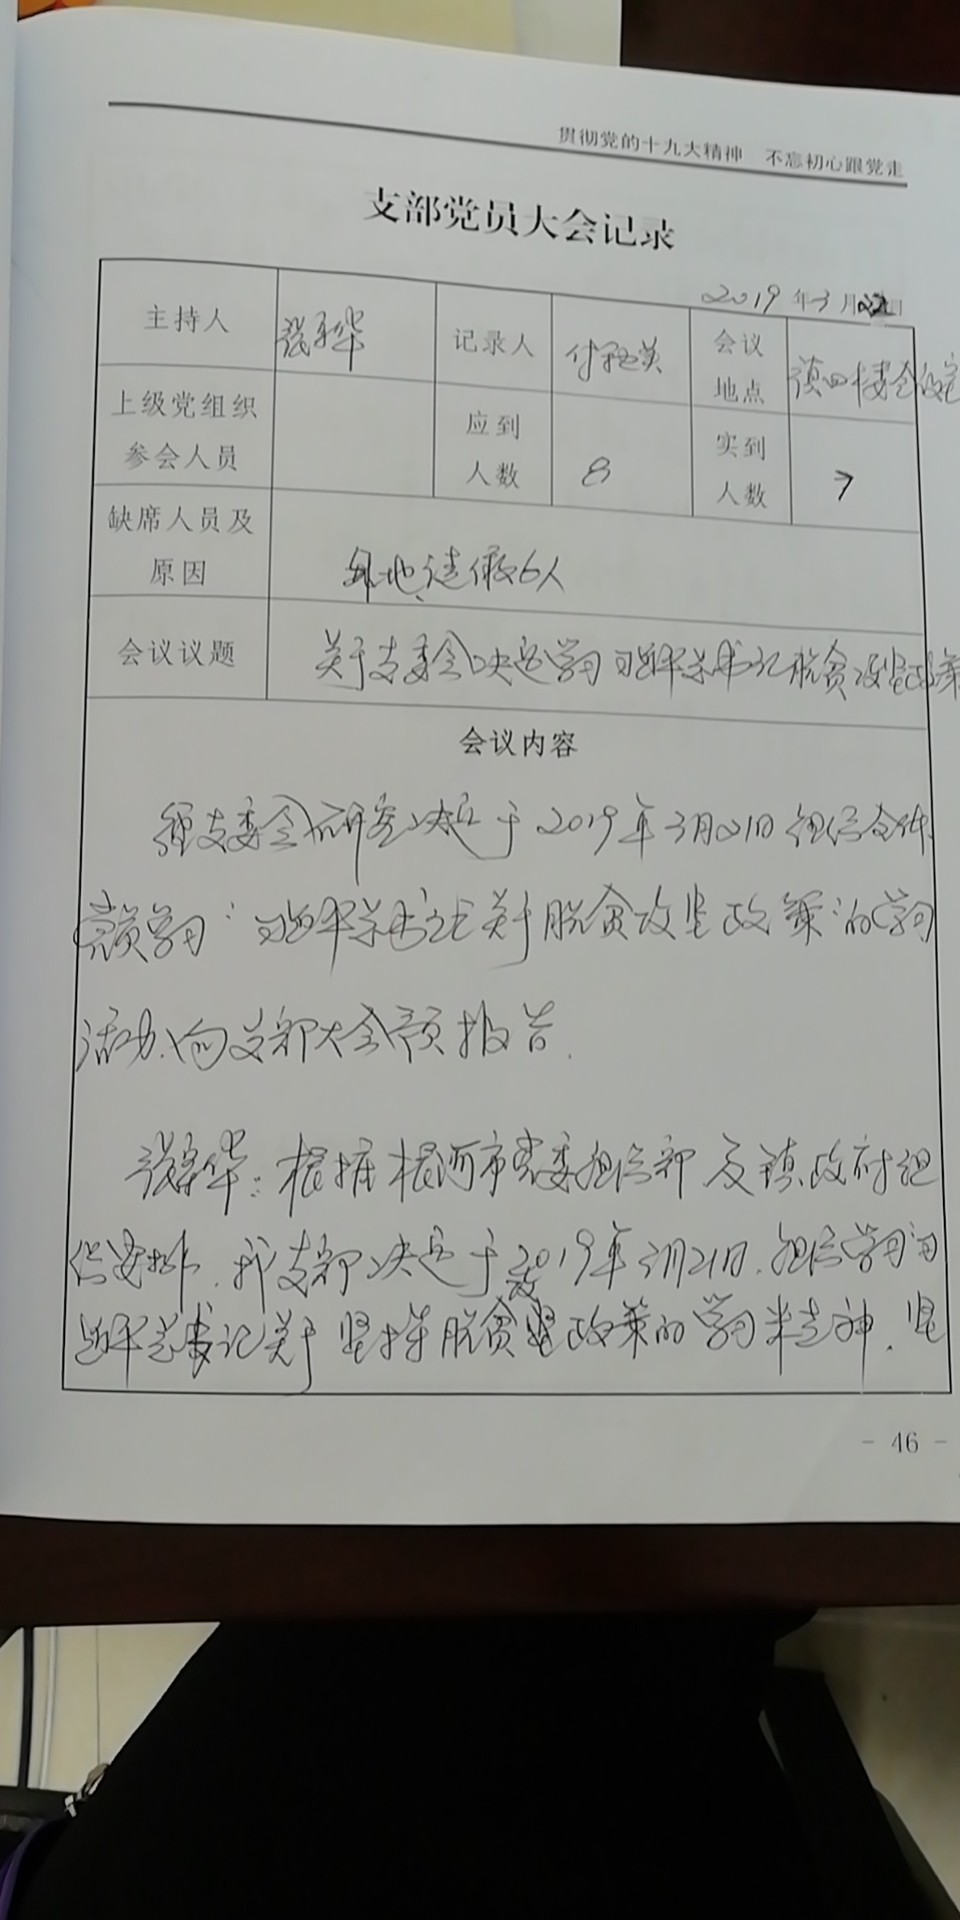 贯彻党的十九大精神 不忘初心跟党走
支部党员大会记录
2019年3月22日
主持人 张 华 记录人 付 英 会议地点 镇四楼会议室
上级党组织参会人员 应到人数 8 实到人数 7
缺席人员及原因 外地、请假6人
会议议题 关于支委会决定学习习近平总书记脱贫攻坚政策
会议内容
经支委会研究决定于2019年3月21日组织全体
党员学习“习近平总书记关于脱贫攻坚政策”的学习
活动、向支部大会预报告.
张 华：根据根河市党委组织部及镇政府组
织安排.我支部决定于2019年3月21日.组织学习习
近平总书记关于坚持脱贫攻坚政策的学习 精神.坚
- 46 -